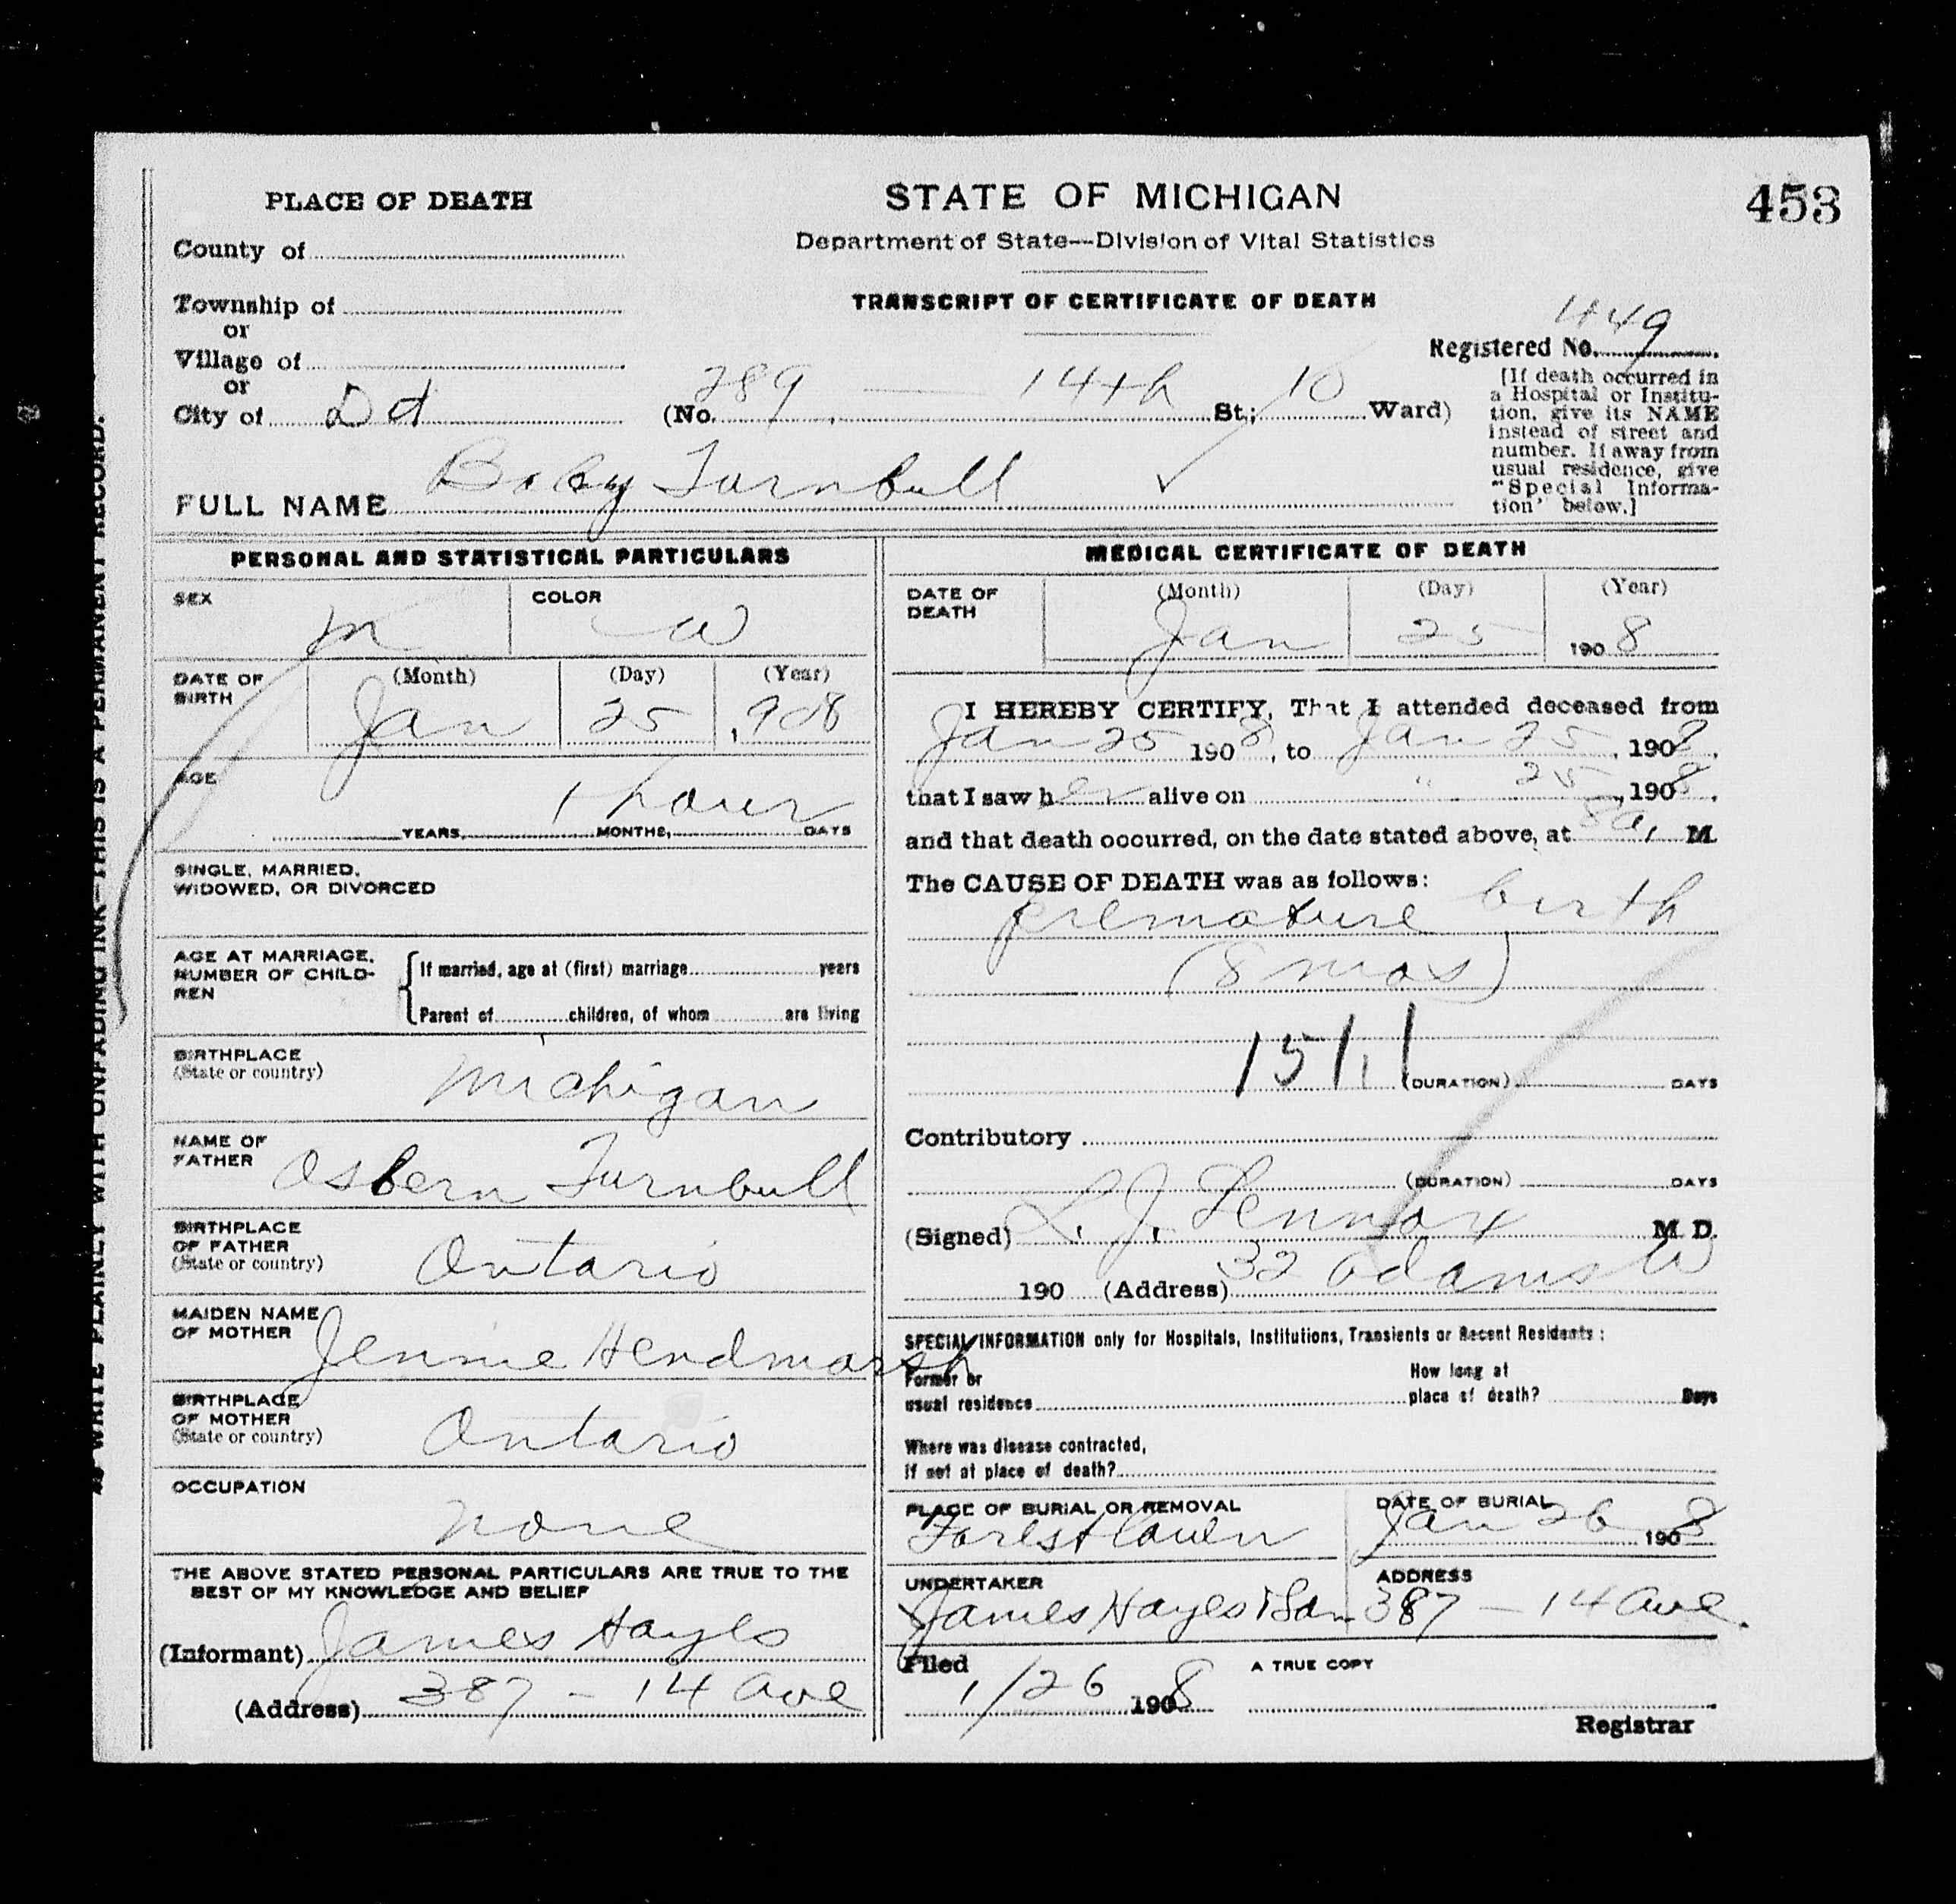 453
PLACE OF DEATH
STATE OF MICHIGAN
Department of State—Division of Vital Statistics
TRANSCRIPT OF CERTIFICATE OF DEATH
County of
Township of
or
Village of
or
City of Dt (No. 289 — 14th St.; 10 Ward)
Registered No. 449
[If death occurred in
a Hospital or Institu-
tion, give its NAME
instead of street and
number. If away from
usual residence, give
"Special Informa-
tion' below.]
FULL NAME Baby Turnbull ✓
PERSONAL AND STATISTICAL PARTICULARS
SEX m COLOR W
DATE OF BIRTH (Month) Jan (Day) 25 (Year) 1908
AGE 1 hour
YEARS, MONTHS, DAYS
SINGLE, MARRIED,
WIDOWED, OR DIVORCED
AGE AT MARRIAGE,
NUMBER OF CHILD-
REN
If married, age at (first) marriage years
Parent of children, of whom are living
BIRTHPLACE
(State or country) Michigan
NAME OF
FATHER Osbern Turnbull
BIRTHPLACE
OF FATHER
(State or country) Ontario
MAIDEN NAME
OF MOTHER Jennie Hendmarsh
BIRTHPLACE
OF MOTHER
(State or country) Ontario
OCCUPATION
none
THE ABOVE STATED PERSONAL PARTICULARS ARE TRUE TO THE
BEST OF MY KNOWLEDGE AND BELIEF
(Informant) James Hayes
(Address) 387 - 14 ave
MEDICAL CERTIFICATE OF DEATH
DATE OF DEATH (Month) Jan (Day) 25 (Year) 1908
I HEREBY CERTIFY, That I attended deceased from
Jan 25 1908, to Jan 25, 1908,
that I saw her alive on " 25, 1908,
and that death occurred, on the date stated above, at 8 a. M.
The CAUSE OF DEATH was as follows:
premature birth
(8 mos)
151 1 (DURATION) DAYS
Contributory
(DURATION) DAYS
(Signed) L. J. Lennox M. D.
190 (Address) 32 Adams W
SPECIAL INFORMATION only for Hospitals, Institutions, Transients or Recent Residents:
Former or
usual residence
How long at
place of death? Days
Where was disease contracted,
If not at place of death?
PLACE OF BURIAL OR REMOVAL
Forest Lawn
DATE OF BURIAL
Jan 26 1908
UNDERTAKER
James Hayes & Son
ADDRESS
387 — 14 ave.
Filed
1/26 1908
A TRUE COPY
Registrar
WRITE PLAINLY WITH UNFADING INK—THIS IS A PERMANENT RECORD.